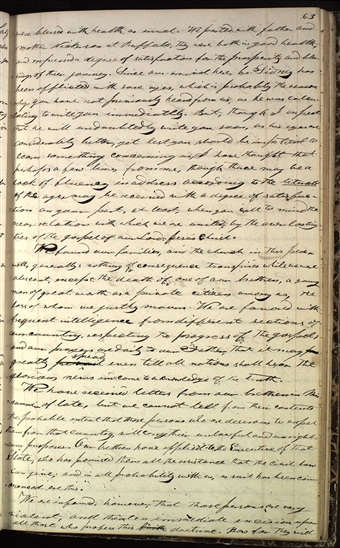 63
was blessed with health as usual. We parted with father and
mother Whitmer at Buffalo, they were both in good health,
and expressed a degree of satisfaction for the prosperity and bles-
sing of their journey. Since our arrival here bro. Sidney has
been afflicted with sore eyes, which is probably the reason
why you have not previously heard from us, as he was calcu-
lating to write you immediately. But, though I expect
that he will undoubtedly write you soon, as his eyes are
considerably better, yet lest you should be impatient to
learn something concerning us, I have thought that
perhaps a few lines from me, though there may be a
lack of fluency in address according to the literati
of the age, may be received with a degree of satisfac-
tion on your part, at least, when you call to mind the
near relation with which we are united by the everlasting
ties of the gospel of our Lord Jesus Christ.
We found our families, and the church in this place
well, generally: nothing of consequence transpired while we were
absent, except the death of one of our brethren, a young
man of great worth as a private citizen among us, the
loss of whom we justly mourn. We are favored with
frequent intelligence from different sections of
our country, respecting the progress of the gospel,
and our prayers are daily to our Father, that it may
greatly spread even till all nations shall hear the
glorious news and come to a knowledge of the truth.
We have received letters from our brethren in Mis-
souri of late, but we cannot tell from their contents
the probable extent that those persons who are desirous to expel
them from that country, will carry their unlawful and unright-
eous purposes. Our brethren have applied to the Executive of that
State, who has promised them all the assistance that the civil law
can give; and in all probability with us, a suit has been com-
menced ere this.
We are informed, however, that those persons are very
violent, and threaten immediate extermination upon
all those who profess this doctrine. How far they will